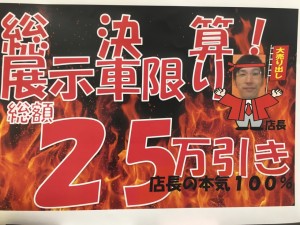 総決算!
展示車限り!
大売り出し
店長
総額
25万引き
店長の本気100%